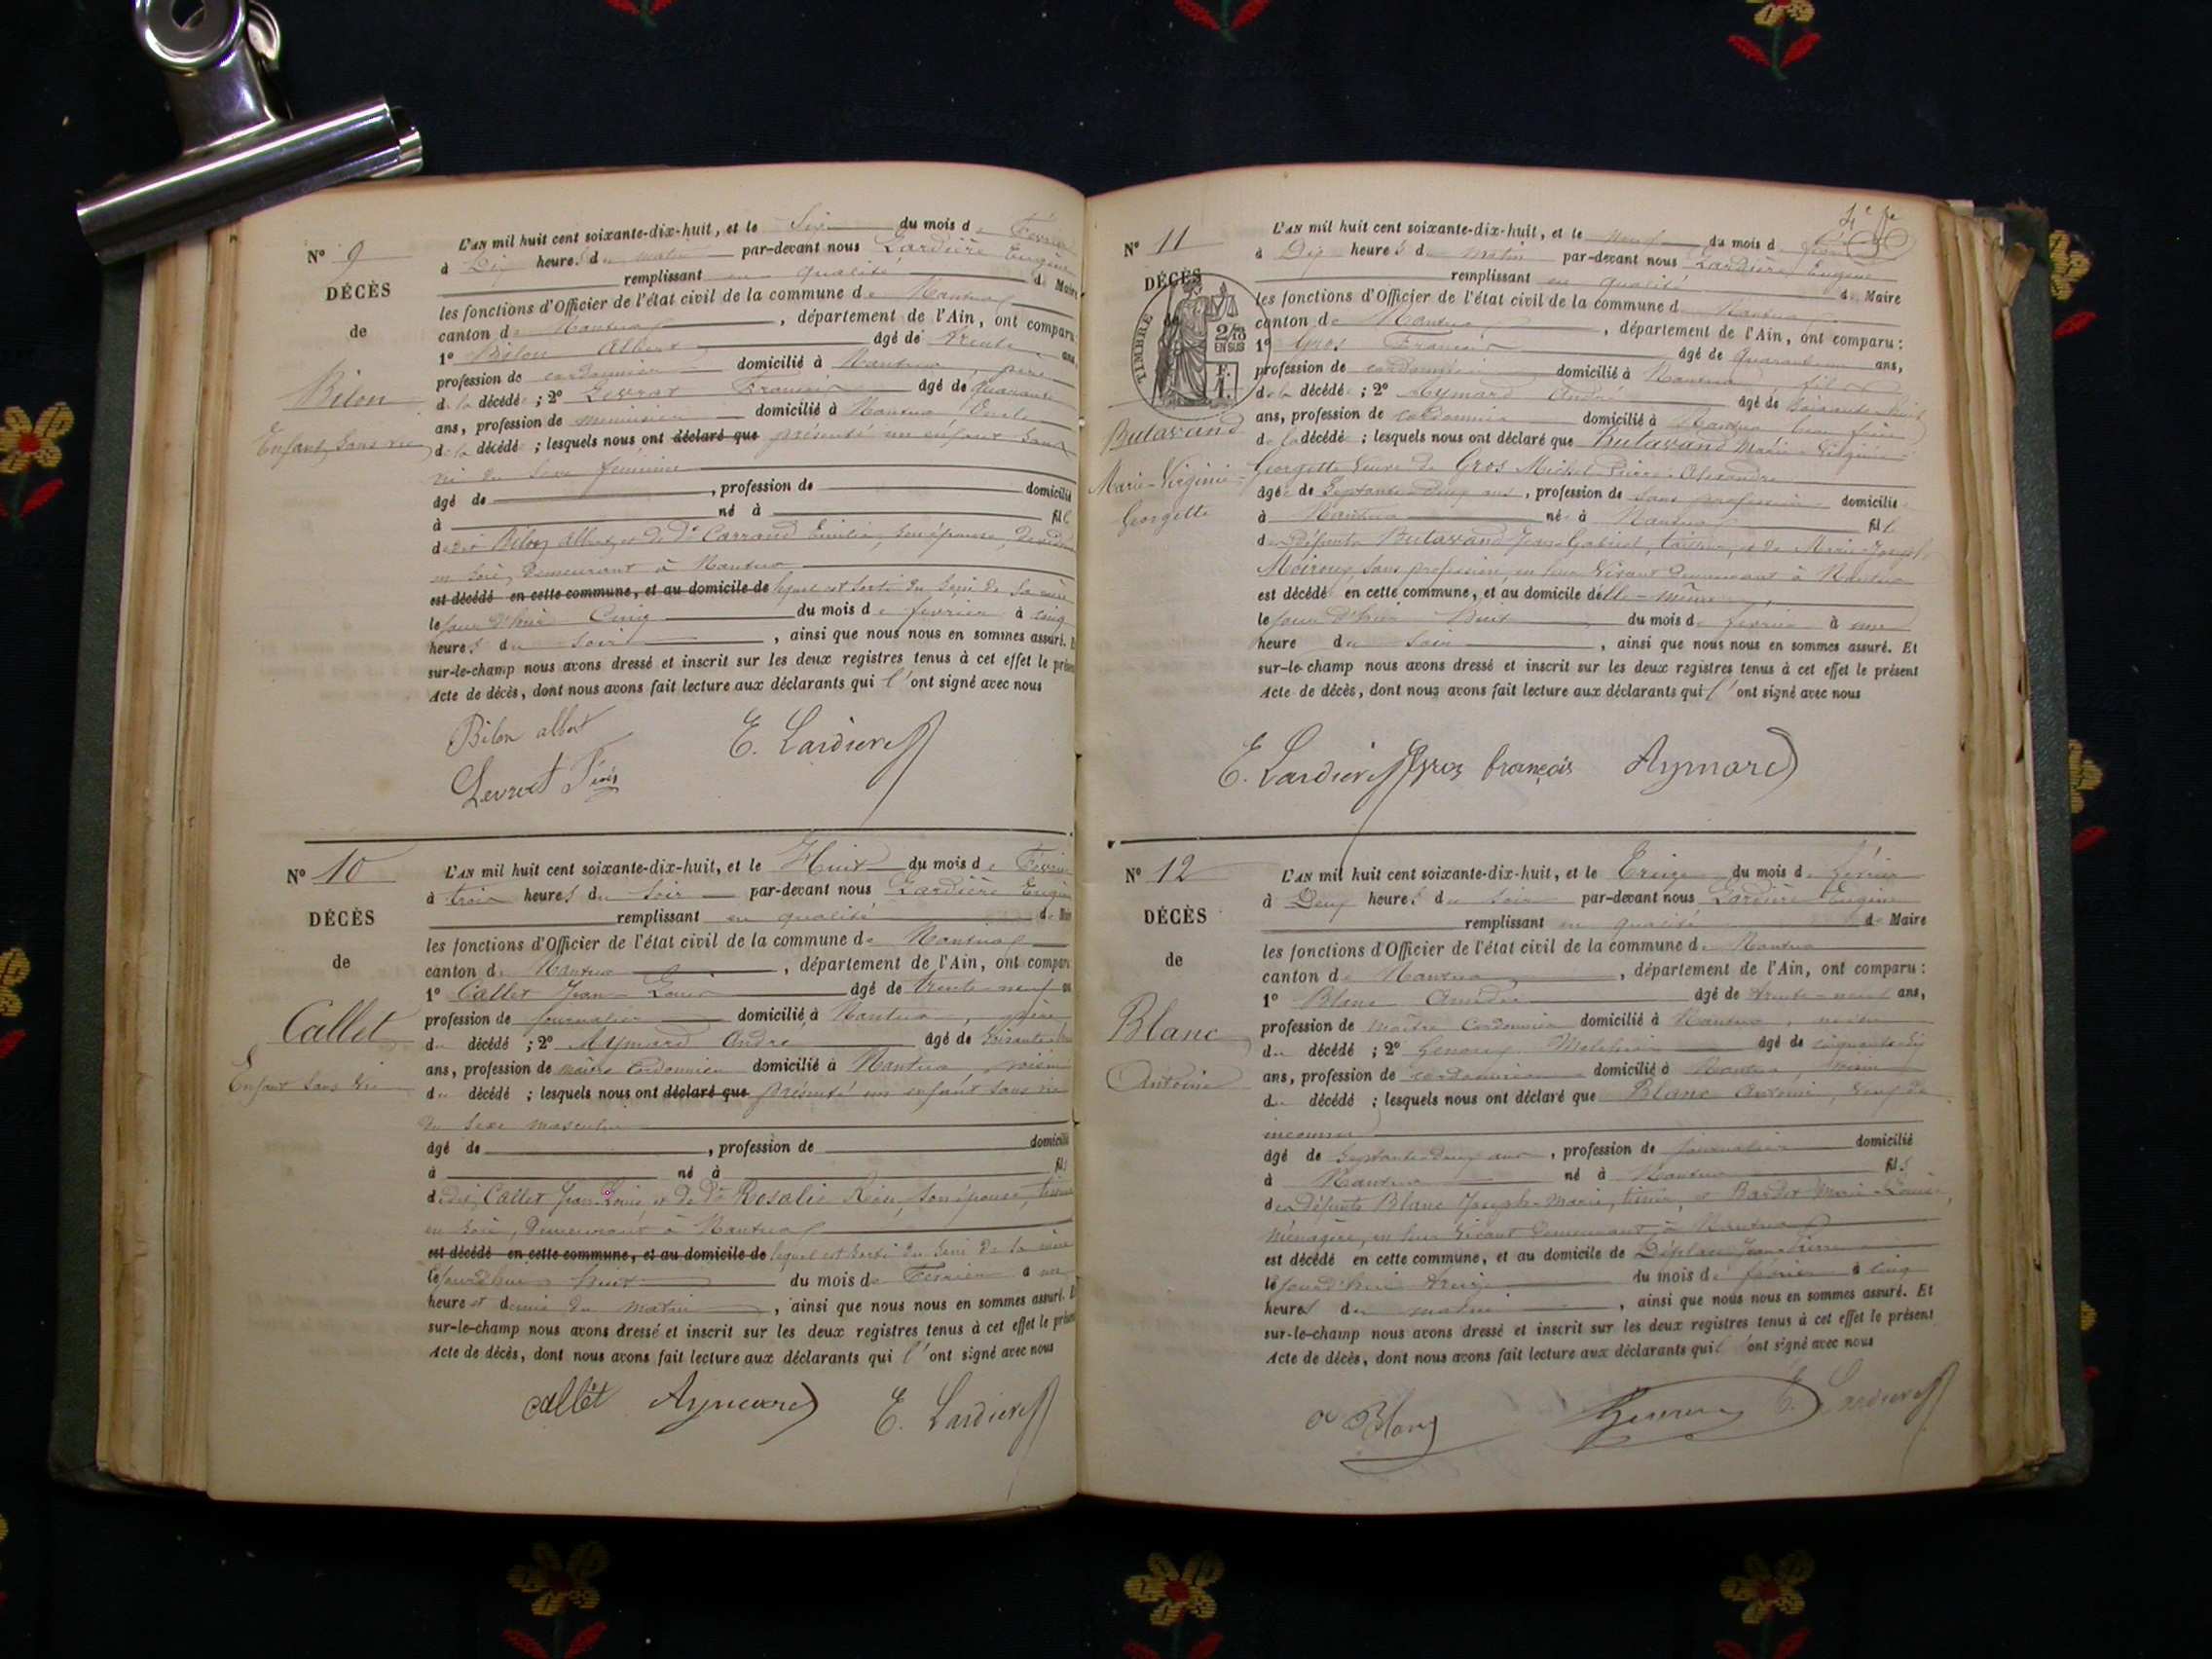 N° 9
DÉCÈS
de
Bilon
Enfant sans vie
L'AN mil huit cent soixante-dix-huit, et le Six du mois de Février
à Dix heures du matin par-devant nous Lardière Eugène
remplissant en qualité de Maire
les fonctions d'Officier de l'état civil de la commune de Nantua
canton de Nantua, département de l'Ain, ont comparu
1° Bilon Albert âgé de Trente ans
profession de cordonnier domicilié à Nantua, père
de la décédée ; 2° Levrat François âgé de quarante
ans, profession de menuisier domicilié à Nantua Oncle
de la décédée ; lesquels nous ont déclaré que présenté un enfant sans
vie du sexe féminin
âgé de , profession de domicilié
à né à fil
de dit Bilon Albert, et de De Carraud Emilie, son épouse,
en soie, demeurant à Nantua
est décédé en cette commune, et au domicile de lequel est sorti du sein de sa mère
le jour d'hier Cinq du mois de février à cinq
heures du soir, ainsi que nous nous en sommes assuré. E
sur-le-champ nous avons dressé et inscrit sur les deux registres tenus à cet effet le présen
Acte de décès, dont nous avons fait lecture aux déclarants qui l'ont signé avec nous
Bilon albert
E. Lardière
Levrat
N° 10
DÉCÈS
de
Callet
Enfant sans vie
L'AN mil huit cent soixante-dix-huit, et le Huit du mois de Février
à trois heures du soir par-devant nous Lardière Eugène
remplissant en qualité de Maire
les fonctions d'Officier de l'état civil de la commune de Nantua
canton de Nantua, département de l'Ain, ont comparu
1° Callet Jean-Louis âgé de trente-neuf ans
profession de journalier domicilié à Nantua, père
du décédé ; 2° Aymard André âgé de soixante
ans, profession de maître Cordonnier domicilié à Nantua, voisin
du décédé ; lesquels nous ont déclaré que présenté un enfant sans vie
du sexe masculin
âgé de , profession de domicilié
à né à fils
de dit Callet Jean-Louis et de De Rosalie Rose, son épouse,
en soie, Demeurant à Nantua
est décédé en cette commune, et au domicile de lequel est sorti du sein de sa mère
le jourd'hui huit du mois de Février à une
heure et demie du matin, ainsi que nous nous en sommes assuré. E
sur-le-champ nous avons dressé et inscrit sur les deux registres tenus à cet effet le présen
Acte de décès, dont nous avons fait lecture aux déclarants qui l'ont signé avec nous
Callet Aymard E. Lardière
N° 11
DÉCÈS
TIMBRE
2/10
EN SUS
F.
1.
Butavand
Marie-Virginie-
Georgette
L'AN mil huit cent soixante-dix-huit, et le neuf du mois de février
à Dix heures du matin par-devant nous Lardière Eugène
remplissant en qualité de Maire
les fonctions d'Officier de l'état civil de la commune de Nantua
canton de Nantua, département de l'Ain, ont comparu :
1° Gros François âgé de quarante ans,
profession de cordonnier domicilié à Nantua, fils
de la décédée ; 2° Aymard André âgé de soixante-huit
ans, profession de cordonnier domicilié à Nantua beau frère
de la décédée ; lesquels nous ont déclaré que Butavand Marie-Virginie-
Georgette Veuve de Gros Michel Pierre Alexandre
âgée de Septante-deux ans, profession de sans profession domiciliée
à Nantua née à Nantua fille
de Défunts Butavand Jean-Gabriel, tailleur, et de Marie-Joseph
Moiroux, sans profession, en leur vivant demeurant à Nantua
est décédée en cette commune, et au domicile d'elle-même
le jour d'hier Huit du mois de février à une
heure du soir, ainsi que nous nous en sommes assuré. Et
sur-le-champ nous avons dressé et inscrit sur les deux registres tenus à cet effet le présent
Acte de décès, dont nous avons fait lecture aux déclarants qui l'ont signé avec nous
E. Lardière Gros françois Aymard
N° 12
DÉCÈS
de
Blanc
Antoine
L'AN mil huit cent soixante-dix-huit, et le Treize du mois de février
à Deux heures du soir par-devant nous Lardière Eugène
remplissant en qualité de Maire
les fonctions d'Officier de l'état civil de la commune de Nantua
canton de Nantua, département de l'Ain, ont comparu :
1° Blanc Amédée âgé de trente-neuf ans,
profession de maître Cordonnier domicilié à Nantua, neveu
du décédé ; 2° âgé de cinquante-six
ans, profession de cordonnier domicilié à Nantua, voisin
du décédé ; lesquels nous ont déclaré que Blanc Antoine, veuf de
inconnu
âgé de septante-deux ans, profession de journalier domicilié
à Nantua né à Nantua fils
de Défunts Blanc Joseph-Marie, et Bardet Marie-Louise,
ménagère, en leur vivant demeurant à Nantua
est décédé en cette commune, et au domicile de Déplace Jean-Pierre
le jourd'hui treize du mois de février à cinq
heures du matin, ainsi que nous nous en sommes assuré. Et
sur-le-champ nous avons dressé et inscrit sur les deux registres tenus à cet effet le présent
Acte de décès, dont nous avons fait lecture aux déclarants qui l'ont signé avec nous
a Blanc E. Lardière